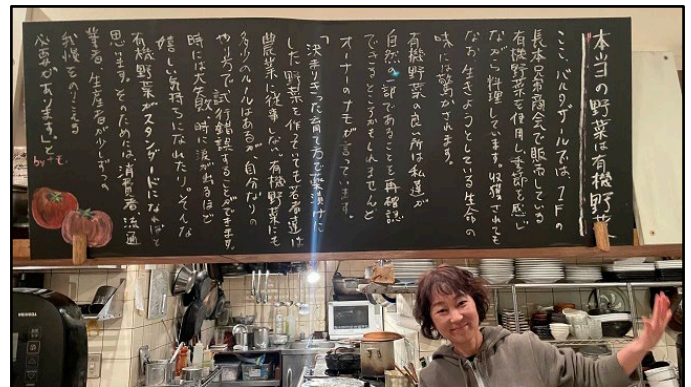 本当の野菜は有機野菜
ここ、バルタザールでは、1Fの
長本兄弟商会で販売している
有機野菜を使用し、季節を感じ
ながら料理しています。収穫されても
なお、生きようとしている生命の
味には驚かされます。
有機野菜の良い所は私達が
自然の一部であることを再確認
できるところかもしれませんと
オーナーのナモが言っています。
「決まりきった育て方で薬漬けに
した野菜を作っていても若者達は
農業に従事しない。有機野菜にも
多少のルールはあるが、自分なりの
やり方で試行錯誤することができます。
時には大失敗、時に涙が出るほど
嬉しい気持ちになれたり。そんな
有機野菜がスタンダードになればと
思います。そのためには消費者、流通
業者、生産者が少しずつの
我慢をのりこえる
必要があります。」と
by ナモ.